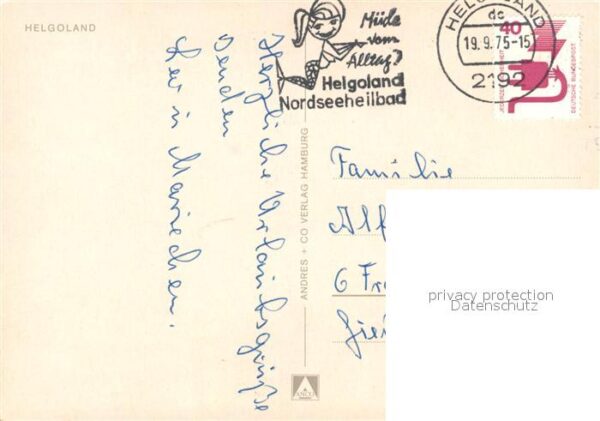 HELGOLAND
Müde
vom
Alltag?
Helgoland
Nordseeheilbad
HELGOLAND
dc
19.9.75-15
2192
40
DEUTSCHE BUNDESPOST
Herzliche Urlaubsgrüße
senden
und Mariechen.
ANDRES + CO VERLAG HAMBURG
ANCO
Familie
Alf
6 Fr
privacy protection
Datenschutz